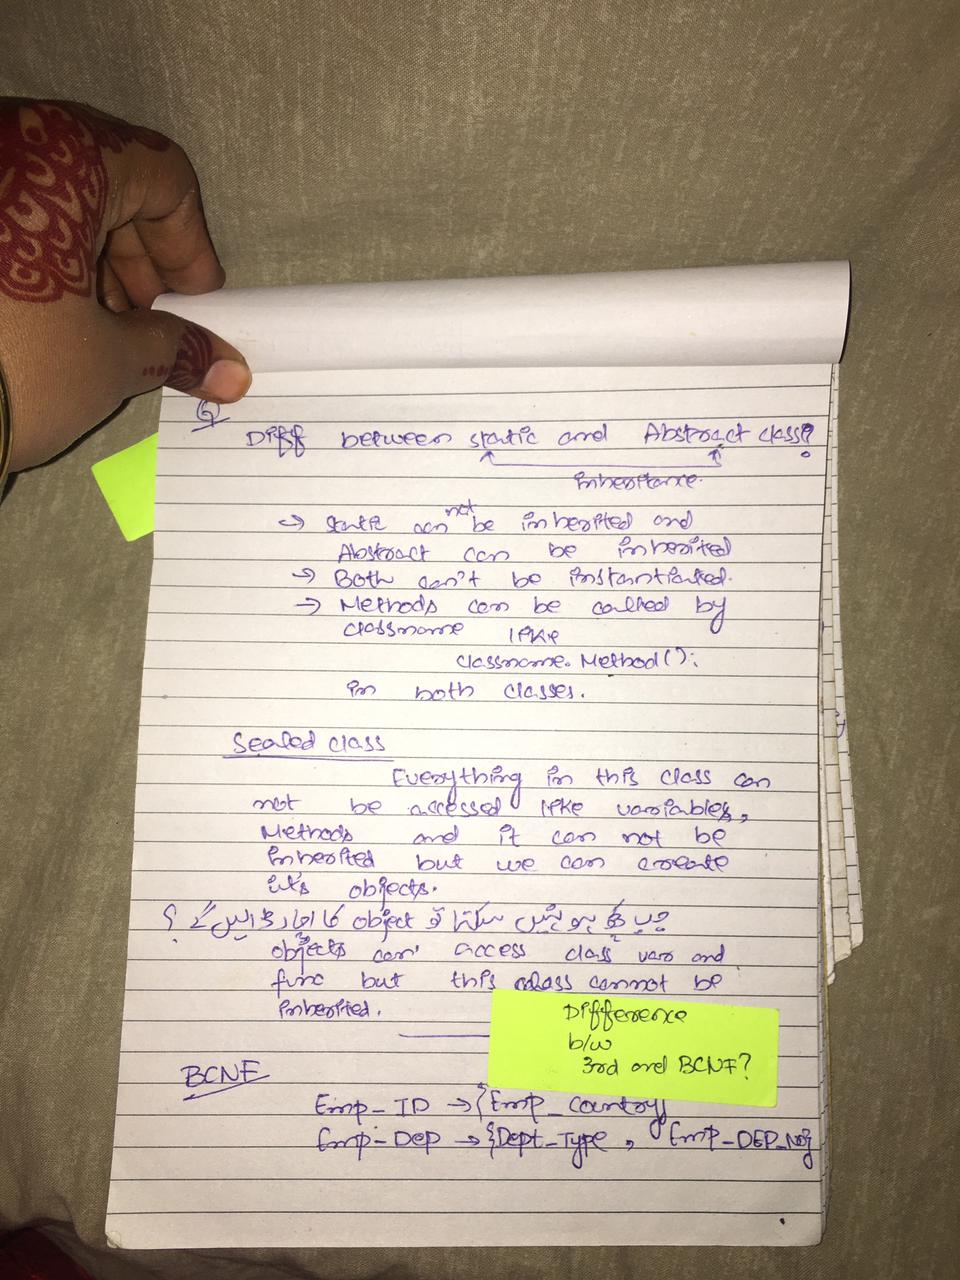 Q
Diff between static and Abstract class?
inheritance.
→ static can not be inherited and
Abstract can be inherited
→ Both can't be instantiated.
→ Methods can be called by
classname like
classname.Method();
in both classes.
Sealed class
Everything in this class can
not be accessed like variables,
Methods and it can not be
inherited but we can create
it's objects.
object
objects can access class var and
func but this class cannot be
inherited.
Difference
b/w
3rd and BCNF?
BCNF
Emp_ID → {Emp_Country}
Emp_Dep → {Dept_Type, Emp_DEP_No}